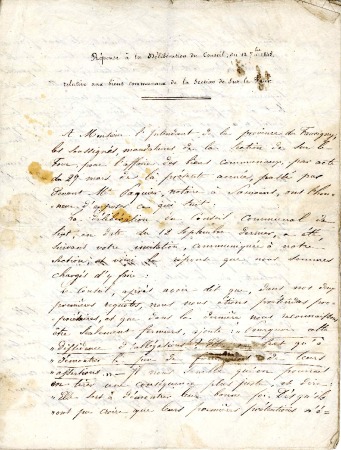 Réponse à la Délibération du Conseil, du 12 7bre
relative aux biens communaux de la Section de Sur le
A Monsieur l'Intendant de la province du Faucigny,
les soussignés mandataires de la Section de Sur le
pour l'affaire des biens communaux, par acte
du 29 mars de la présente année, passé par
devant Me Paquier, notaire à Samoëns, ont l'hon-
neur d'exposer ce qui suit.
La Délibération du Conseil Communal de
en date du 12 Septembre dernier, a été
suivant votre invitation, communiquée à notre
Section; et voici la réponse que nous sommes
chargés d'y faire:
Le Conseil, après avoir dit que, dans nos deux
premières requêtes, nous nous étions prétendus pro-
priétaires, et que dans la dernière nous reconnaissons
être seulement fermiers, ajoute: "Comme cette
"différence d'allégations qu'à
"démontrer le peu de de leurs
"assertions". Il nous semble qu'on pourrait
en tirer une conséquence plus juste, et dire:
"Elle sert à démontrer leur bonne foi; puisqu'ils
"ont pu croire que leurs premières prétentions n'é-